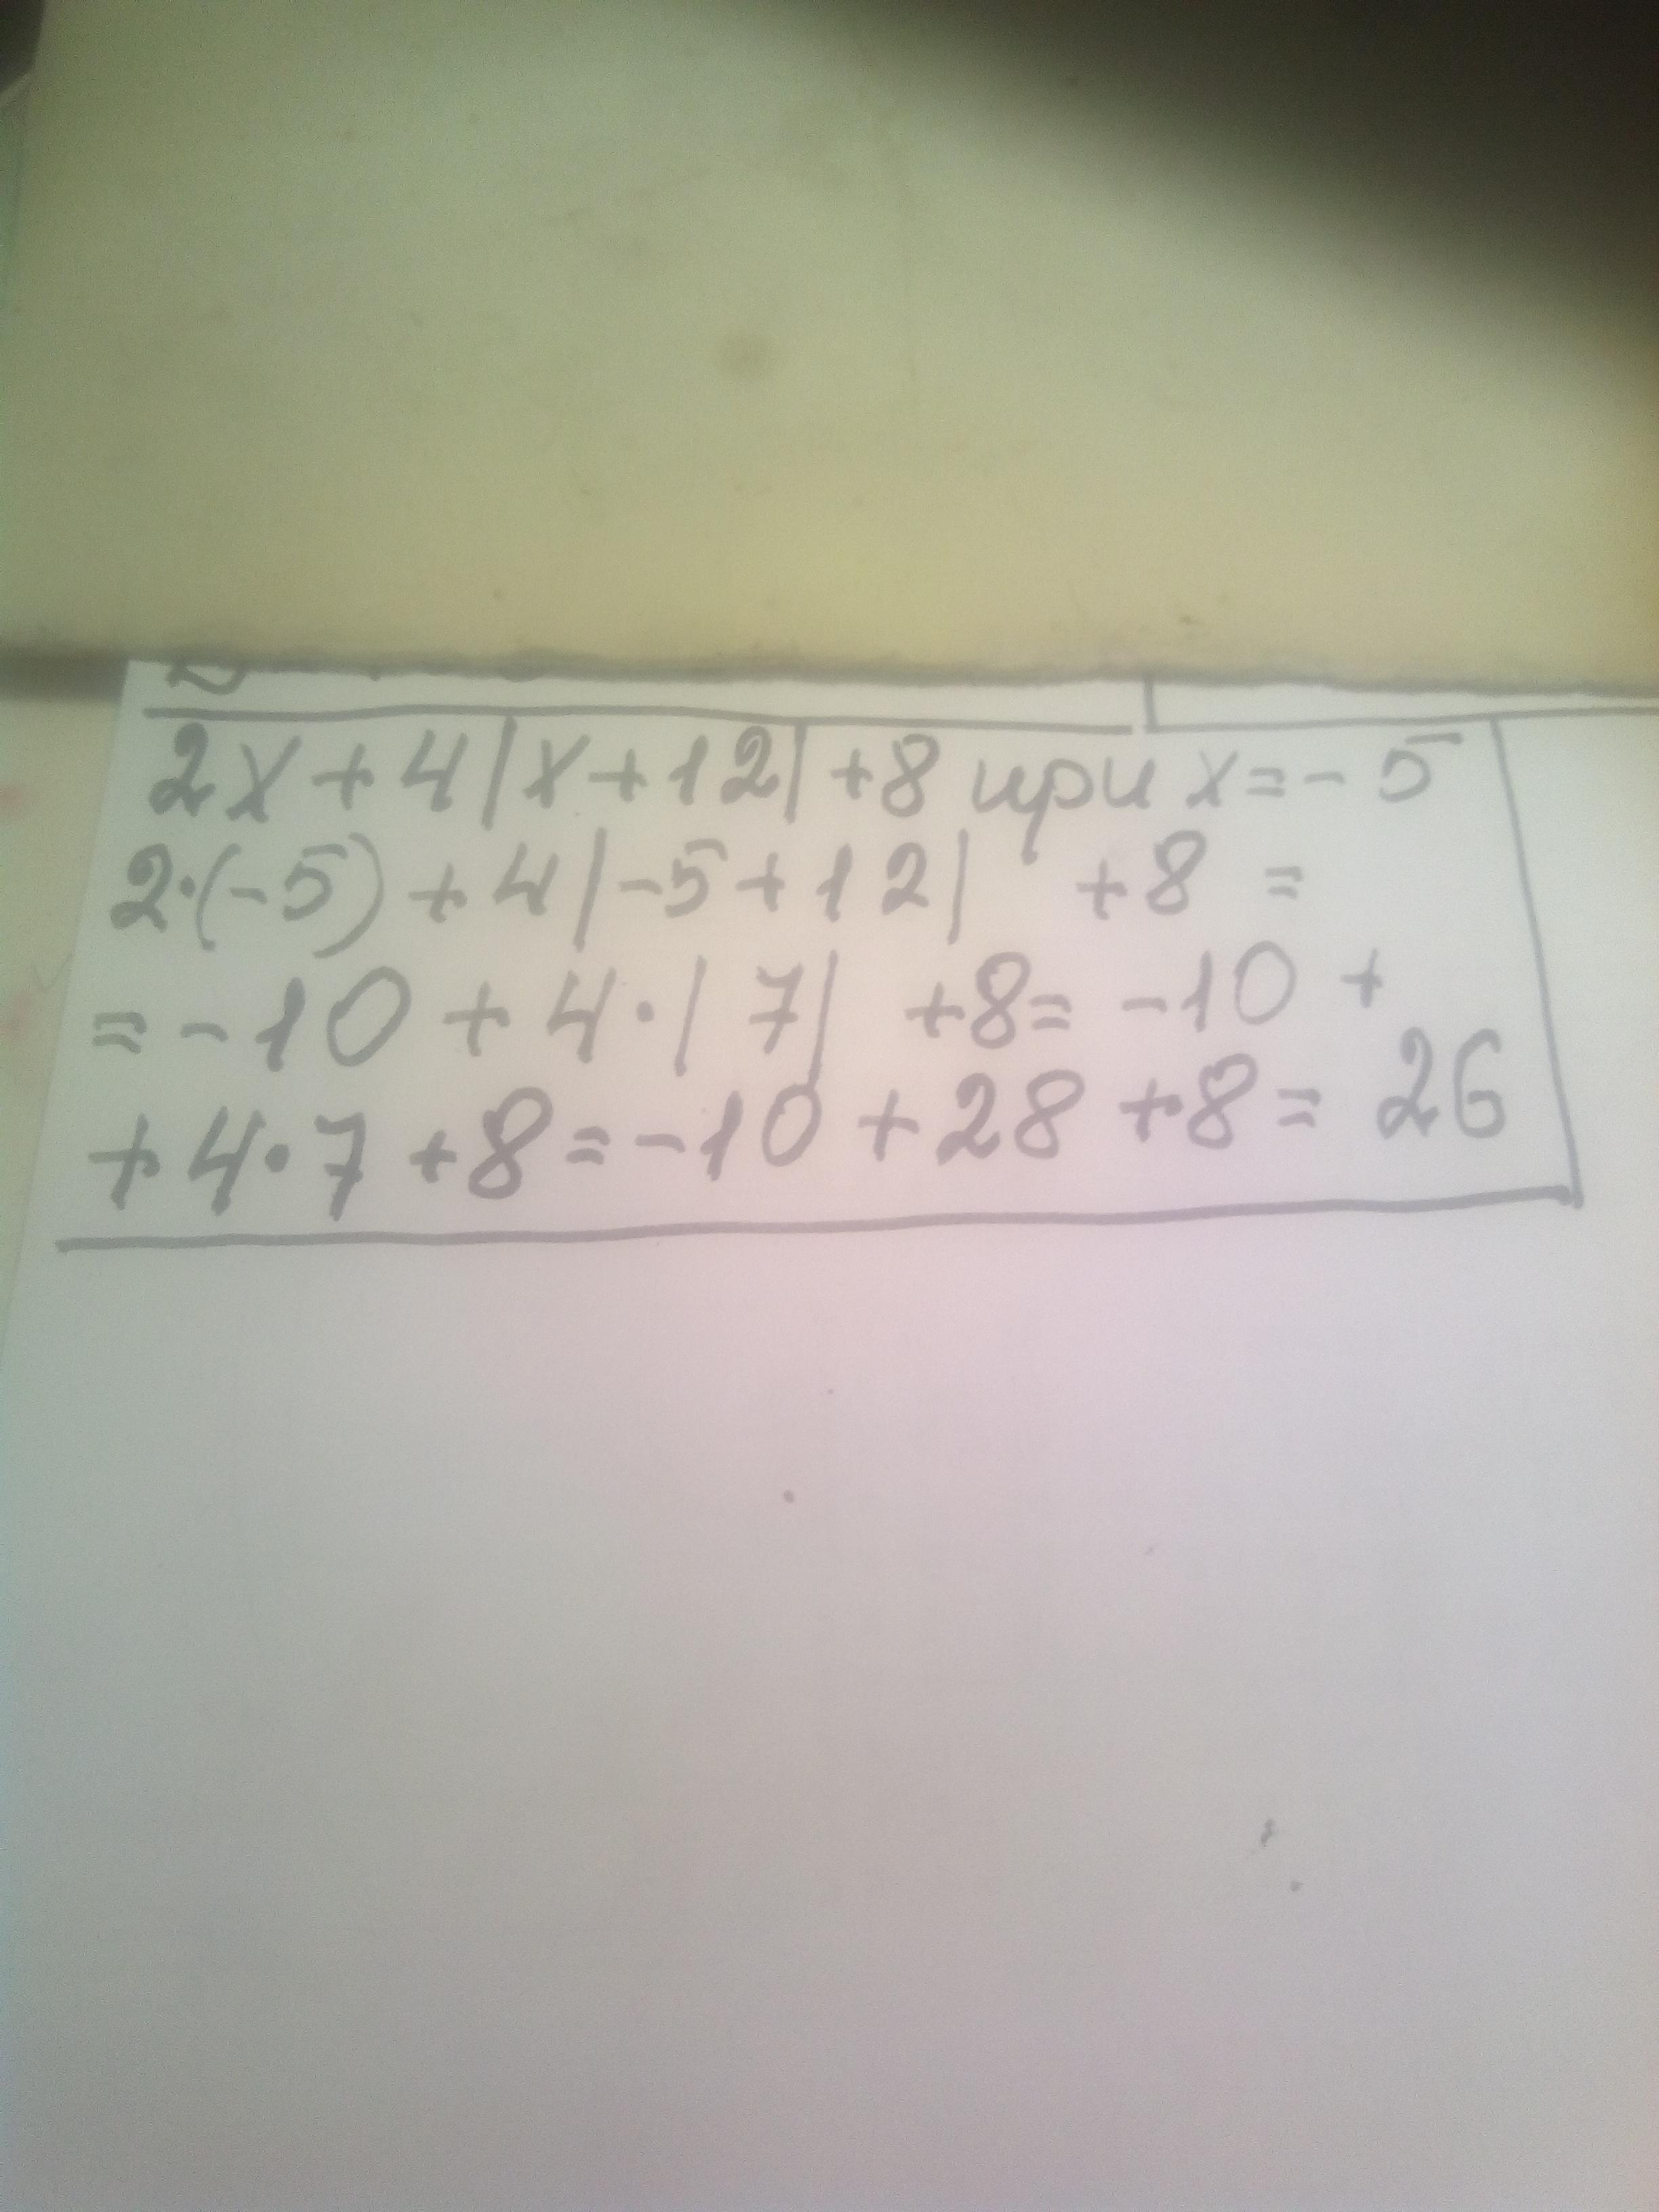 2x+4|x+12|+8 при x=-5
2·(-5)+4|-5+12| +8 =
=-10+4·|7| +8=-10+
+4·7+8=-10+28+8=26